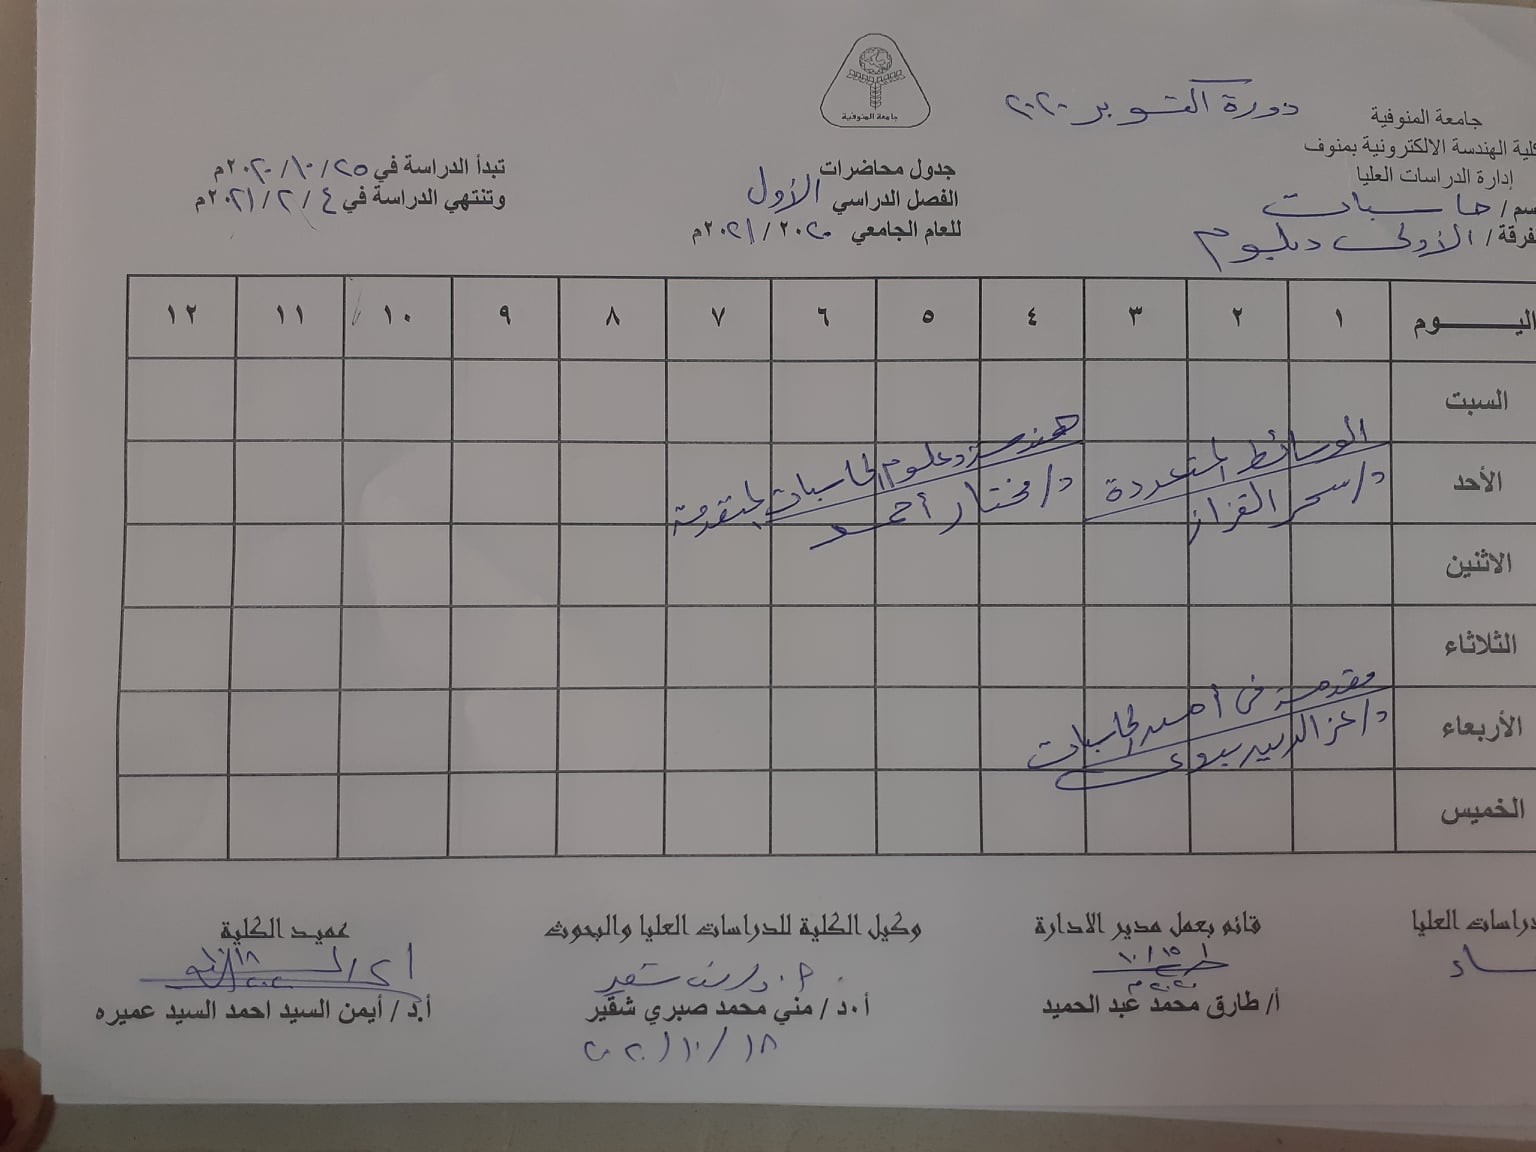 دورة أكتوبر ٢٠٢٠
جامعة المنوفية
كلية الهندسة الالكترونية بمنوف
إدارة الدراسات العليا
سم / حاسبات
فرقة / الأولى دبلوم
جامعة المنوفية
جدول محاضرات
الفصل الدراسي الأول
للعام الجامعي ٢٠٢٠ / ٢٠٢١م
تبدأ الدراسة في ٢٥ / ١٠ / ٢٠٢٠م
وتنتهي الدراسة في ٤ / ٢ / ٢٠٢١م
اليـــــــوم ١ ٢ ٣ ٤ ٥ ٦ ٧ ٨ ٩ ١٠ ١١ ١٢
السبت
الأحد
الوسائط المتعددة
د/ سحر القزاز
هندسة وعلوم الحاسبات المتقدمة
د/ مختار أحمد
الاثنين
الثلاثاء
الأربعاء
مقدمة في أمن الحاسبات
د/ عز الدين بديوى
الخميس
دراسات العليا
قائم بعمل مدير الادارة
١٥ / ١٠
٢٠٢٠م
أ/ طارق محمد عبد الحميد
وكيل الكلية للدراسات العليا والبحوث
أ.د / مني محمد صبري شقير
١٨ / ١٠ / ٢٠٢٠
عميد الكلية
أ.د / أيمن السيد احمد السيد عميره